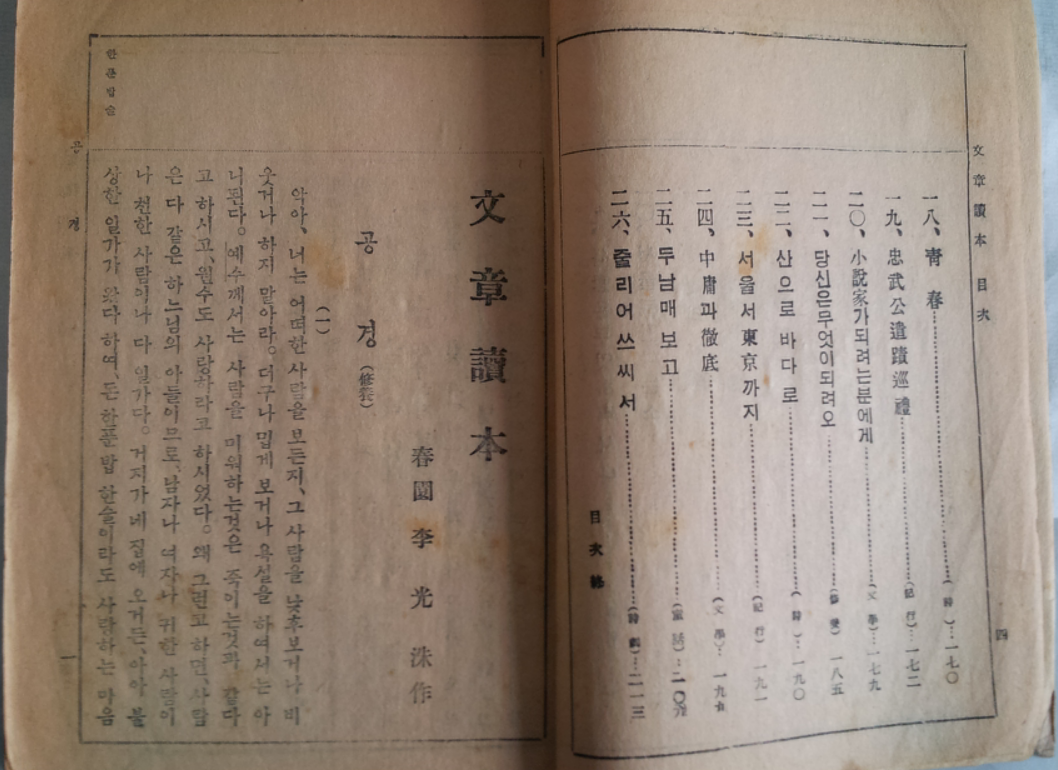 文章讀本 目次
四
一八、靑 春 (詩) 一七〇
一九、忠武公遺蹟巡禮 (紀行) 一七二
二〇、小說家가되려는분에게 (文學) 一七九
二一、당신은무엇이되려오 (修養) 一八五
二二、산으로 바다로 (詩) 一九〇
二三、서울서東京까지 (紀行) 一九一
二四、中庸과徹底 (文學)
二五、두남매 보고 (童話)
二六、줄리어쓰 씨서 (詩劇) 二一三
目次終
文章讀本
春園 李光洙作
공 경 (修養)
(一)
악아, 너는 어떠한 사람을 보든지, 그 사람을 낮후보거나 비
웃거나 하지 말아라. 더구나 밉게 보거나 욕설을 하여서는 아
니된다. 예수께서는 사람을 미워하는것은 죽이는것과 같다
고 하시고, 원수도 사랑하라고 하시었다. 왜 그런고 하면, 사람
은 다 같은 하느님의 아들이므로, 남자나 여자나 귀한 사람이
나 천한 사람이나 다 일가다. 거지가 네 집에 오거든, 아아 불
상한 일가가 왔다 하여, 돈 한푼 밥 한술이라도 사랑하는 마음
한푼밥술
공 경
一